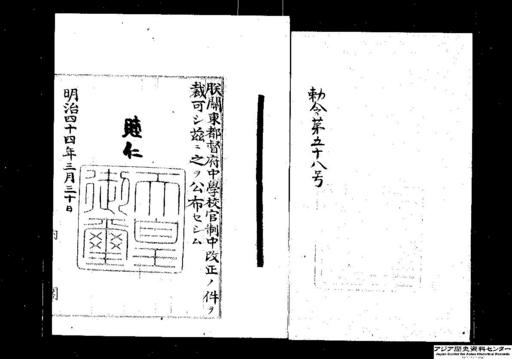 勅令第五十八号
朕關東都督府中學校官制中改正ノ件ヲ
裁可シ茲ニ之ヲ公布セシム
睦仁
天皇
御璽
明治四十四年三月三十日
内閣
アジア歴史資料センター
Japan Center for Asian Historical Records